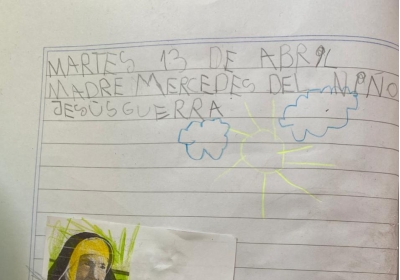 MARTES 13 DE ABRIL
MADRE MERCEDES DEL NIÑO
JESÚS GUERRA